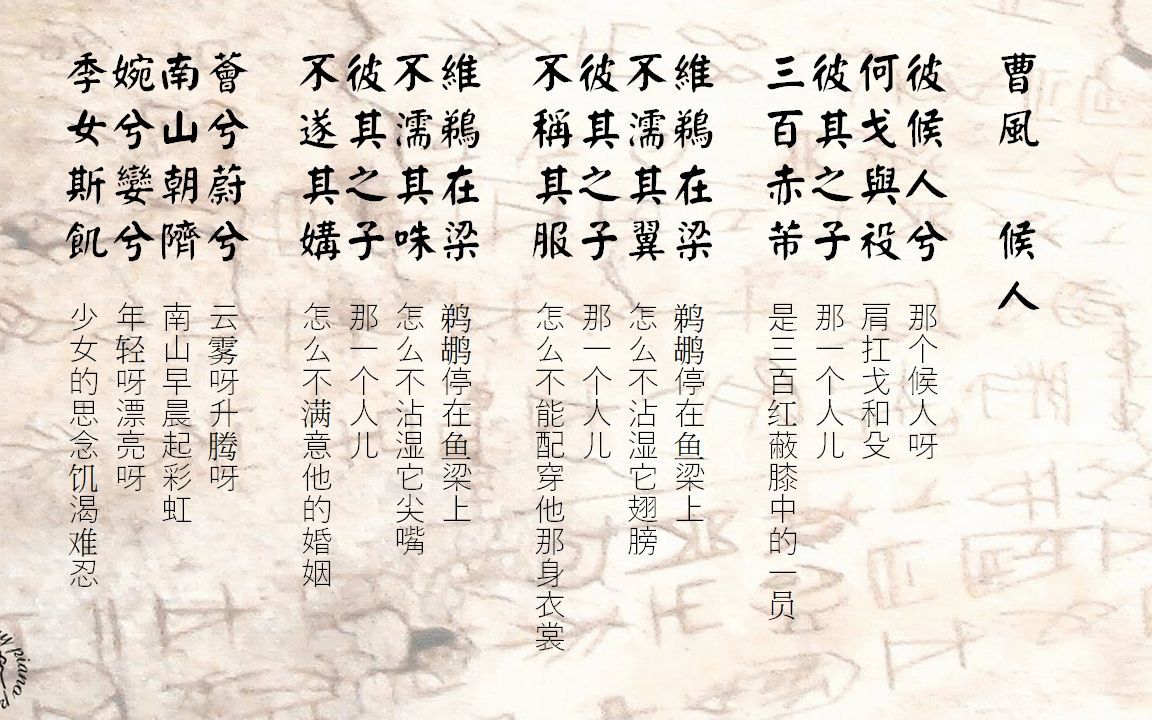 曹風 候人
彼候人兮
那个候人呀
何戈與祋
肩扛戈和殳
彼其之子
那一个人儿
三百赤芾
是三百红蔽膝中的一员
維鵜在梁
鹈鹕停在鱼梁上
不濡其翼
怎么不沾湿它翅膀
彼其之子
那一个人儿
不稱其服
怎么不能配穿他那身衣裳
維鵜在梁
鹈鹕停在鱼梁上
不濡其咮
怎么不沾湿它尖嘴
彼其之子
那一个人儿
不遂其媾
怎么不满意他的婚姻
薈兮蔚兮
云雾呀升腾呀
南山朝隮
南山早晨起彩虹
婉兮孌兮
年轻呀漂亮呀
季女斯飢
少女的思念饥渴难忍
piano